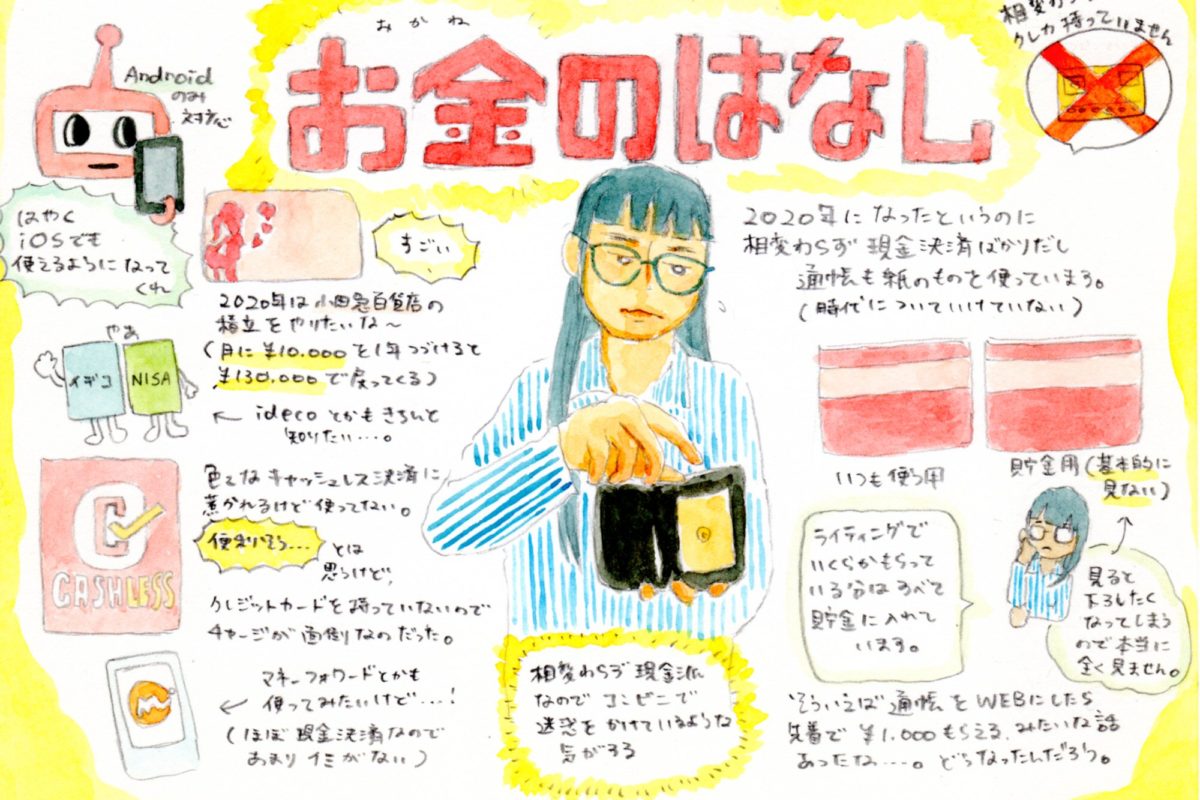 おかね
お金のはなし
相変わ
クレカ持っていません
Android
のみ
対応
はやく
iOSでも
使えるようになって
くれ
すごい
2020年は小田急百貨店の
積立をやりたいな〜
(月に¥10.000を1年つづけると
¥130.000で戻ってくる)
やあ
イデコ
NISA
← idecoとかもきちんと
知りたい…。
C
CASHLESS
色々なキャッシュレス決済に
惹かれるけど使ってない。
便利そう…
とは
思うけど、
クレジットカードを持っていないので
チャージが面倒なのだった。
マネーフォワードとかも
← 使ってみたいけど…!
(ほぼ現金決済なので
あまりイミがない)
相変わらず現金派
なのでコンビニで
迷惑をかけているような
気がする
2020年になったというのに
相変わらず現金決済ばかりだし
通帳も紙のものを使っています。
(時代についていけていない)
いつも使う用
貯金用(基本的に
見ない)
ライティングで
いくらかもらって
いる分はすべて
貯金に入れて
います。
見ると
下ろしたく
なってしまう
ので本当に
全く見ません。
そういえば通帳をWEBにしたら
先着で¥1.000もらえる、みたいな話
あったな…。どうなったんだろう。